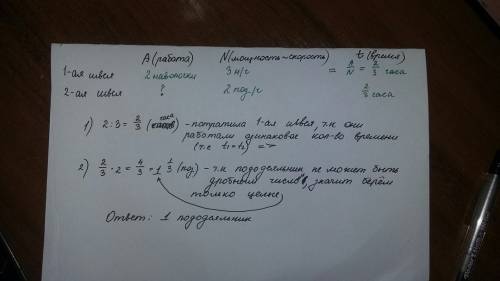 A (работа) N (мощность~скорость) t (время)
1-ая швея 2 наволочки 3 н/г = A/N = 2/3 часа
2-ая швея ? 2 под./г 2/3 часа
1) 2:3 = 2/3 (часа) - потратила 1-ая швея, т.к они
работали одинаковое кол-во времени
(т.е t₁=t₂) =>
2) 2/3 · 2 = 4/3 = 1 1/3 (под.) - т.к пододеяльник не может быть
дробным числом, значит берём
только целые
Ответ: 1 пододеяльник